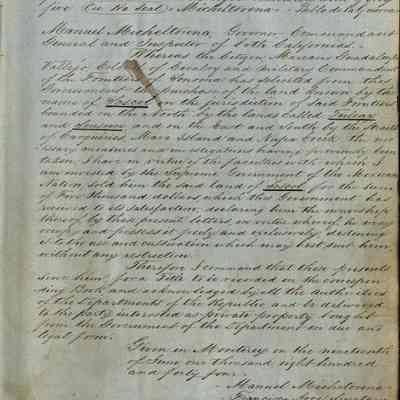 five Cts No Seal = Micheltorena =
Manuel Micheltorena, Governor Commandant
General and Inspector of both Californias.
Whereas the Citizen Mariano Guadalupe
Vallejo Colonel of Cavalry and Military Commandant
of the Frontier of Sonoma has solicited from this
Government the purchase of the land known by the
name of Soscol in the jurisdiction of said Frontier
bounded on the North by the lands called Tulucay
and Suscun and on the East and South by the Straits
of Carquines, Mare Island and Napa Creek. The nec
essary measures and investigations having previously been
taken, I have in virtue of the faculties with which I
am invested by the Supreme Government of the Mexican
Nation, sold him the said land of Soscol for the sum
of Five thousand dollars which this Government has
received to its satisfaction, declaring him the ownership
thereof by these present letters, in virtue whereof he may
occupy and possess it freely and exclusively, destining
it to the use and cultivation which may best suit him
without any restriction.
Therefor I command that these presents
serve him for a Title to be recorded in the correspon
ding Book and acknowledged by all the authorities
of the Departments of the Republic and be delivered
to the party interested as private property bought
from the Government of the Department in due and
legal form.
Given in Monterey on the nineteenth
of June one thousand eight hundred
and forty four.
= Manuel Micheltorena =